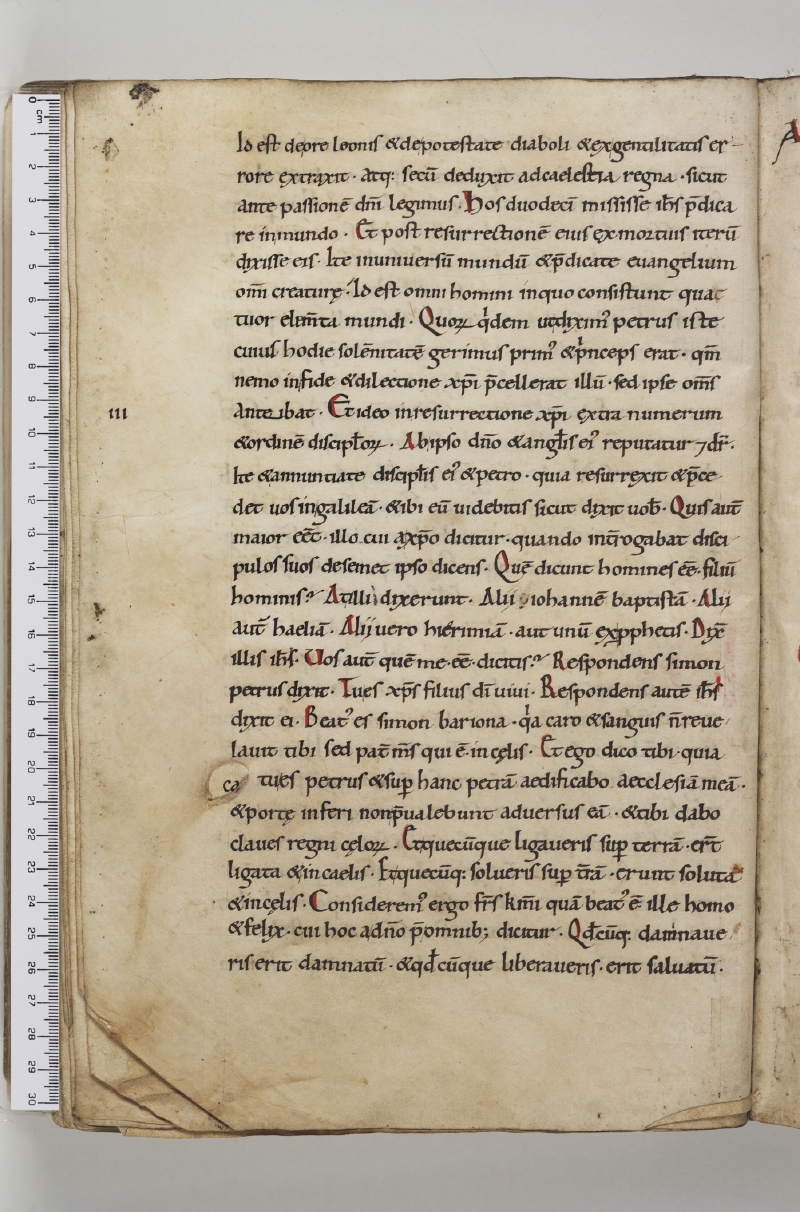 Id est de ore leonis & de potestate diaboli & ex gentilitatis er-
rore extraxit · atq: secū deduxit ad caelestia regna · sicut
ante passionē dn̄i legimus. Hos duodecī misisse ih̄s p̄dica
re in mundo · Et post resurrectionē eius ex mortuis iterū
dixisse eis · Ite in universū mundū & p̄dicate euangelium
om̄i creaturę · Id est omni homini in quo consistunt quat
tuor elem̄ta mundi · Quoꝝ qͥdem ut diximꝰ petrus iste
cuius hodie solēnitatē gerimus primꝰ & pͥnceps erat · qm̄
nemo in fide & dilectione xp̄i p̄cellerat illū · sed ipse om̄s
anteibat · Et ideo in resurrectione xp̄i extra numerum
III
& ordinē discipłoꝝ · Ab ipso dn̄o & angłis eiꝰ reputatur ⁊ dr̄ ·
Ite & annuntiate discipłis eiꝰ & petro · quia resurrexit & p̄ce
det uos in galileā · & ibi eū uidebitis sicut dixit uob̄ · Quis aut̄
maior eēt · illo cui a xp̄o dicitur · quando int̄rogabat disci
pulos suos de semet ipso dicens · Quē dicunt homines eē · filiū
hominis? At illi dixerunt · Alii iohannē baptistā · Alii
aut̄ haeliā · Alii uero hierimiā · aut unū ex pphetis · Dix̄
illis ih̄s · Uos aut̄ quē me · eē · dicitis? Respondens simon
petrus dixit · Tu es xp̄s filius dī uiui · Respondens autē ih̄s
dixit ei · Beatꝰ es simon bariona · qͥa caro & sanguis n̄ reue
lauit tibi sed pat̄ m̄s qui ē · in cęlis · Et ego dico tibi · quia
ca tu es petrus & sup̱ hanc petrā aedificabo aecclesiā meā ·
& portę inferi non p̄ualebunt adversus eā · & tibi dabo
claues regni cęloꝝ · Et quecūque ligaueris sup̱ terrā · er̄t
ligata & in caelis · Et quecūq: solueris sup̱ t̄rā · erunt soluta
& in cęlis · Consideremꝰ ergo fr̄s km̄i quā beatꝰ ē · ille homo
& felix · cui hoc a dn̄o p̄ omnib; dicitur · Qđcūq: damnaue
ris erit damnatū · & qđcūque liberaueris · erit saluatū ·